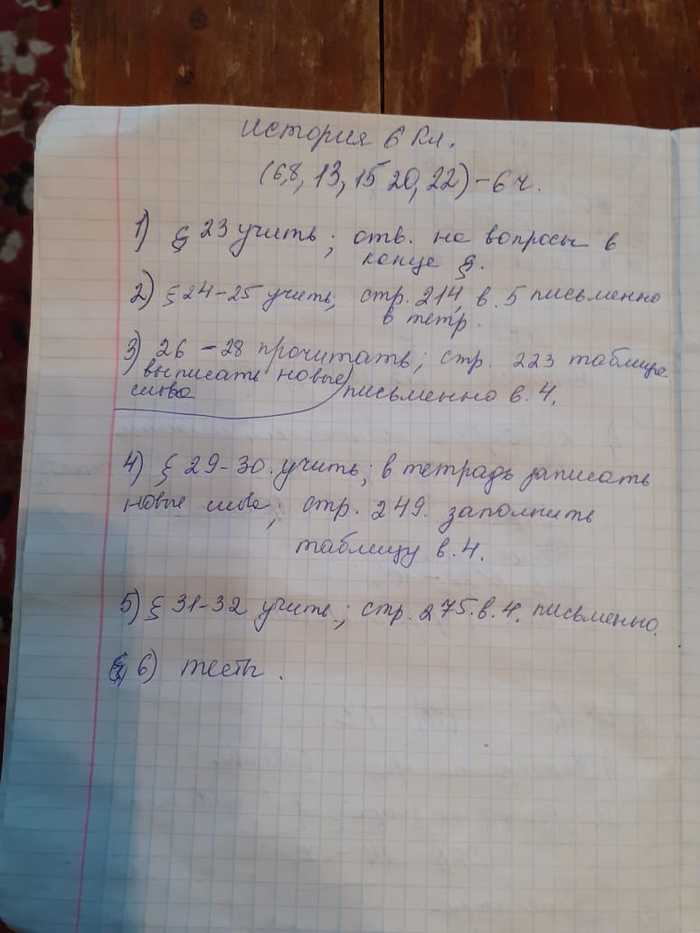 история 6 кл.
(6,8, 13, 15 20, 22) - 6 ч.
1) § 23 учить; отв. на вопросы в
конце §.
2) § 24-25 учить; стр. 214, в. 5 письменно
в тетр.
3) 26 - 28 прочитать; стр. 223 таблица
выписать новые
слова
письменно в. 4.
4) § 29-30. учить; в тетрадь записать
новые слова; стр. 249. заполнить
таблицу в. 4.
5) § 31-32 учить; стр. 275. в. 4. письменно.
6) тесты.